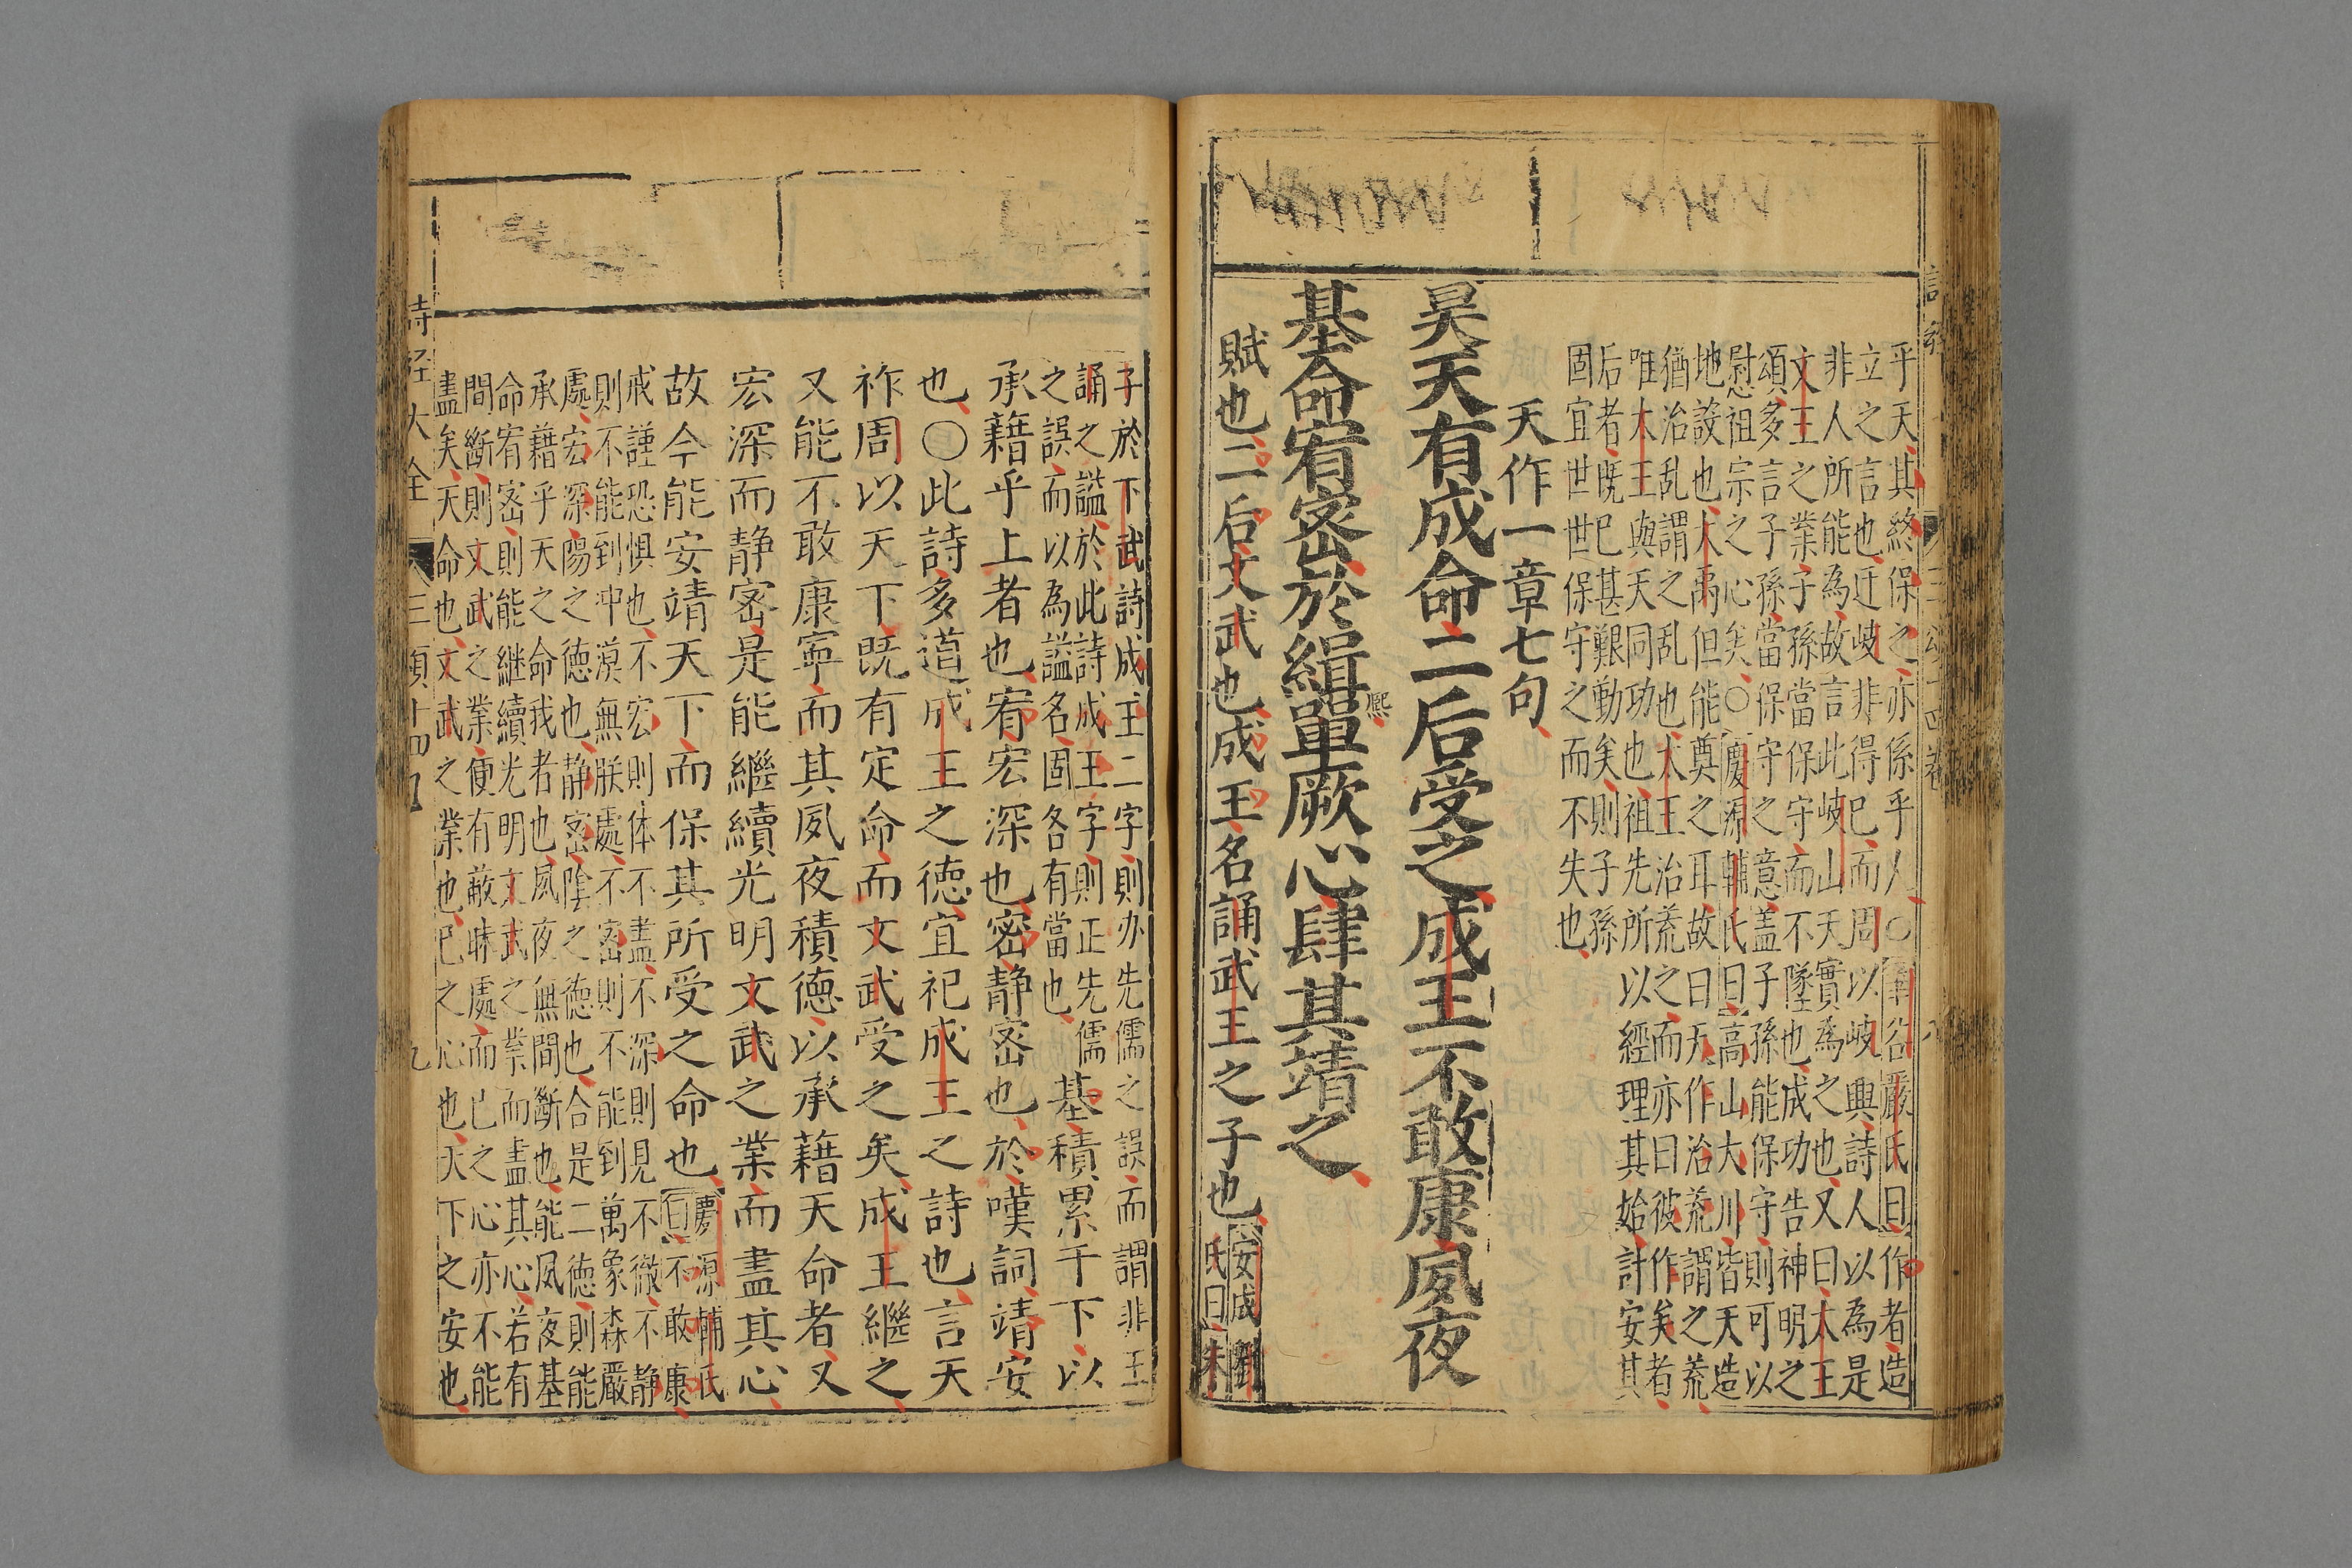 乎天其終保之亦係乎人○華谷嚴氏曰作者造
立之言也迂岐非得已而周以岐興詩人以為是
非人所能為故言此岐山天實為之也又曰太王
文王之業子孫當保守而不墜也成功告神明之
頌多言子孫當保守之意盖子孫能保守則可以
慰祖宗之心矣○慶源輔氏曰高山大川皆天造
地設也大禹但能奠之耳故曰天作治荒謂之荒
猶治乱謂之乱也太王治荒之而亦曰彼作矣者
唯太王與天同功也祖先所以經理其始計安其
后者既已甚艱勤矣則子孫
固宜世世保守之而不失也
天作一章七句
昊天有成命二后受之成王不敢康夙夜
基命宥密於緝熙單厥心肆其靖之
賦也二后文武也成王名誦武王之子也安成劉
氏曰朱
子於下武詩成王二字則亦先儒之誤而謂非王
誦之謚於此詩成王字則正先儒
之誤而以為謚名固各有當也
基積累于下以
承藉乎上者也宥宏深也密静密也於嘆詞靖安
也○此詩多道成王之德宜祀成王之詩也言天
祚周以天下既有定命而文武受之矣成王繼之
又能不敢康寧而其夙夜積德以承藉天命者又
宏深而静密是能繼續光明文武之業而盡其心
故今能安靖天下而保其所受之命也慶源輔氏
曰不敢康
戒謹恐惧也不宏則体不盡不深則見不微不静
則不能到冲漠無朕處不密則不能到萬象森嚴
處宏深陽之德也静密陰之德也合是二德則能
承藉乎天之命我者也夙夜無間斷也能夙夜基
命宥密則能継續光明文武之業而盡其心若有
間斷則文武之業便有蔽昧處而已之心亦不能
盡矣天命也文武之業也已之心也天下之安也
詩経大全 三頌十四 九